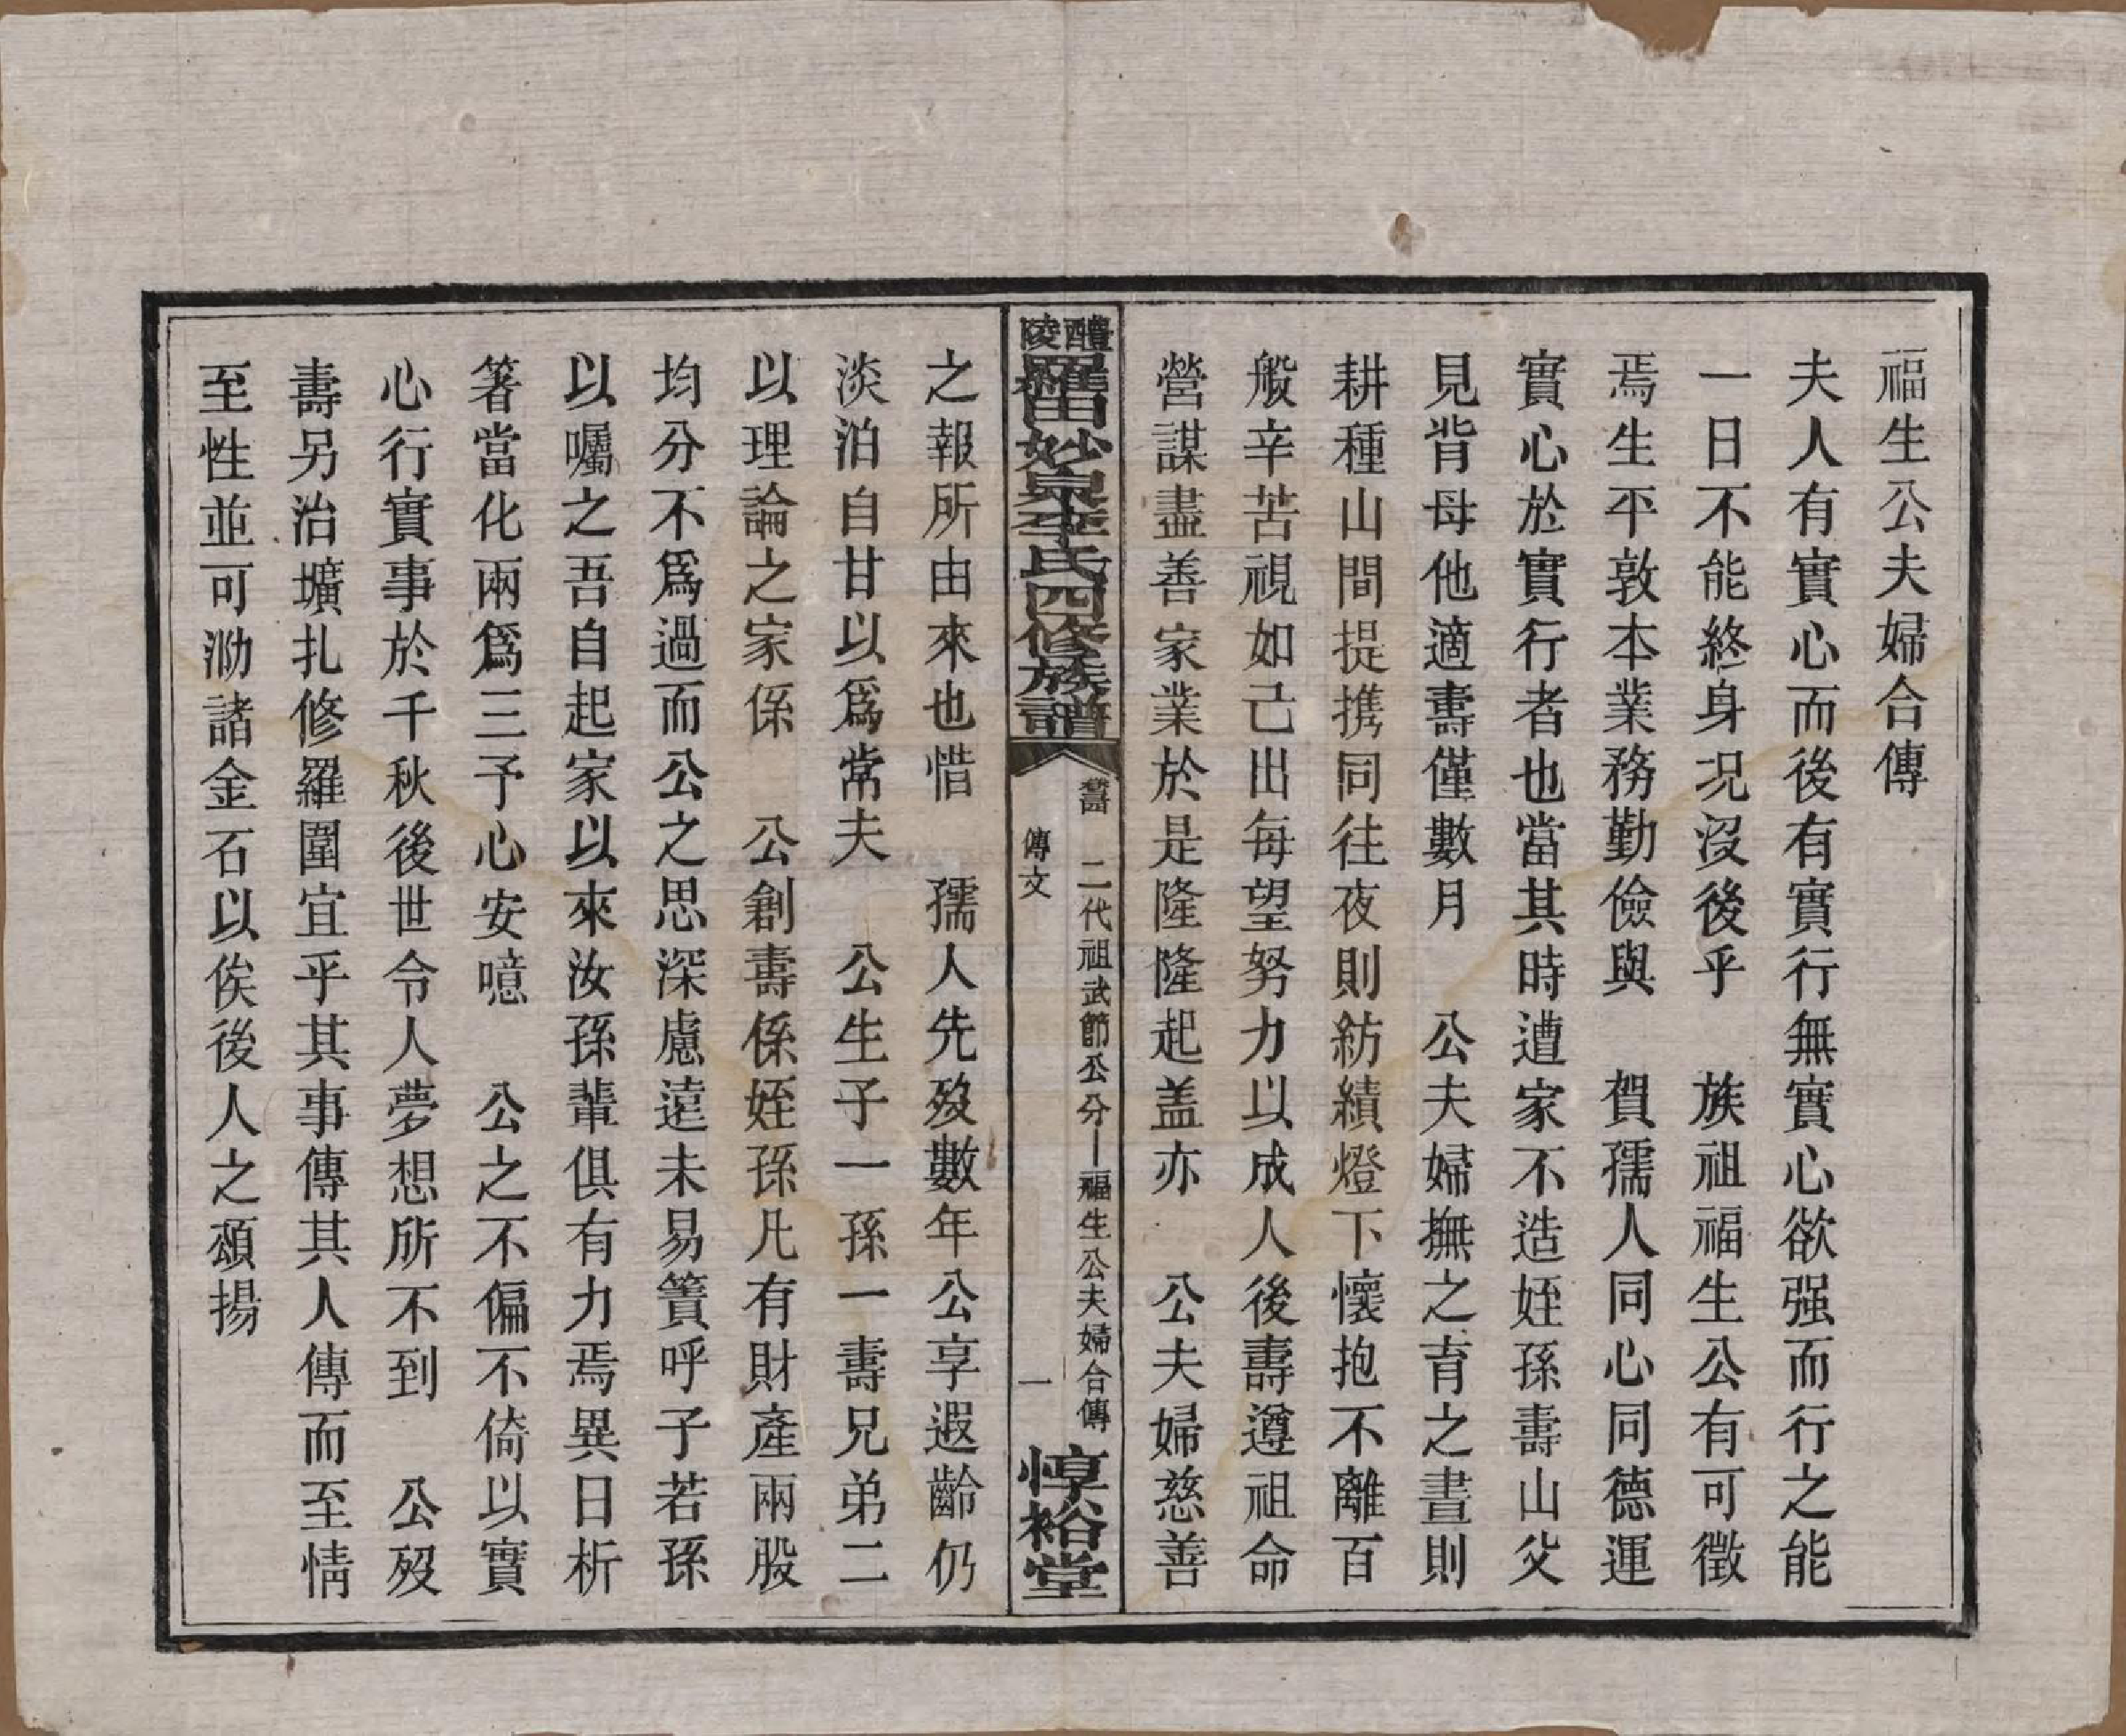 福生公夫婦合傳
夫人有實心而後有實行無實心欲强而行之能
一日不能終身况沒後乎　族祖福生公有可徵
焉生平敦本業務勤儉與　賀孺人同心同德運
實心於實行者也當其時遭家不造姪孫壽山父
見背母他適壽僅數月　公夫婦撫之育之晝則
耕種山間提携同往夜則紡績燈下懷抱不離百
般辛苦視如己出每望努力以成人後壽遵祖命
營謀盡善家業於是隆隆起盖亦　公夫婦慈善
醴陵羅田妙泉李氏四修族譜
二代祖武節公分一福生公夫婦合傳
傳文
一
惇裕堂
之報所由來也惜　孺人先歿數年公享遐齡仍
淡泊自甘以爲常夫　公生子一孫一壽兄弟二
以理論之家係　公創壽係姪孫凡有財產兩股
均分不爲過而公之思深慮遠未易簀呼子若孫
以囑之吾自起家以來汝孫輩俱有力焉異日析
箸當化兩爲三予心安噫　公之不偏不倚以實
心行實事於千秋後世令人夢想所不到　公歿
壽另治壙扎修羅圍宜乎其事傳其人傳而至情
至性並可泐諸金石以俟後人之頌揚